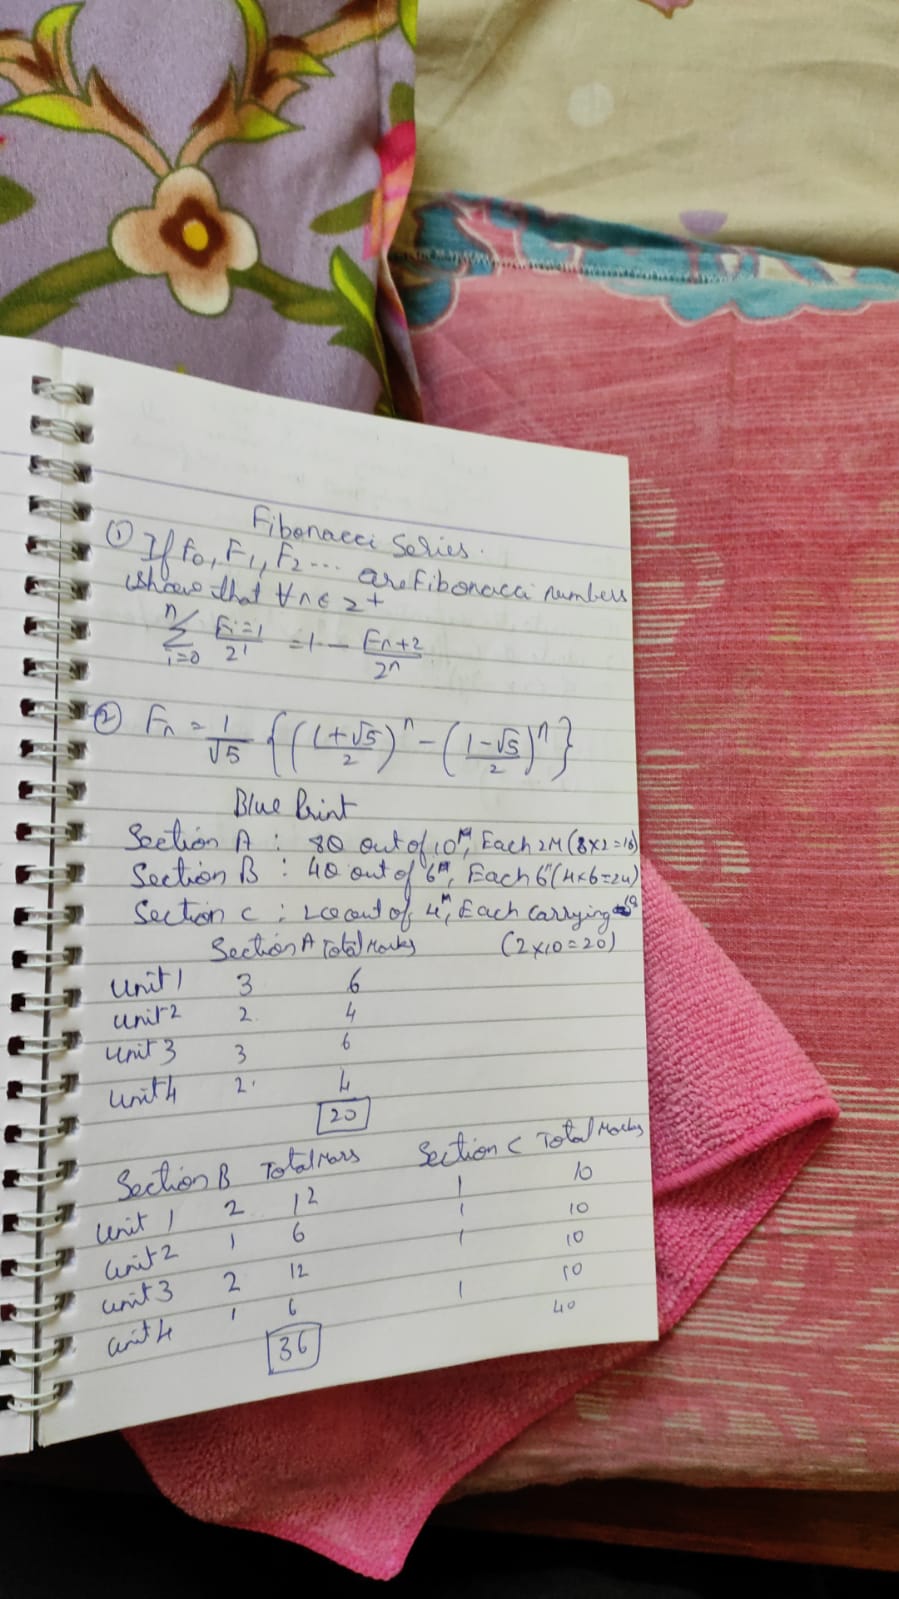 Fibonacci Series.
① If F0, F1, F2 ... are Fibonacci numbers
show that ∀ n ∈ z+
n∑i=0 Fi=1/2i = 1 - Fn+2/2n
② Fn = 1/√5 {((1+√5)/2)^n - ((1-√5)/2)^n}
Blue Print
Section A : 8Q out of 10M, Each 2M (8×2=16)
Section B : 4Q out of 6M, Each 6M (4×6=24)
Section C : out of 4M, Each carrying 10
(2×10=20)
Section A Total Marks
Unit 1 3 6
Unit 2 2 4
Unit 3 3 6
Unit 4 2 4
20
Section B Total Mars Section C Total Marks
Unit 1 2 12 1 10
Unit 2 1 6 1 10
Unit 3 2 12 1 10
Unit 4 1 6 1 10
36 40